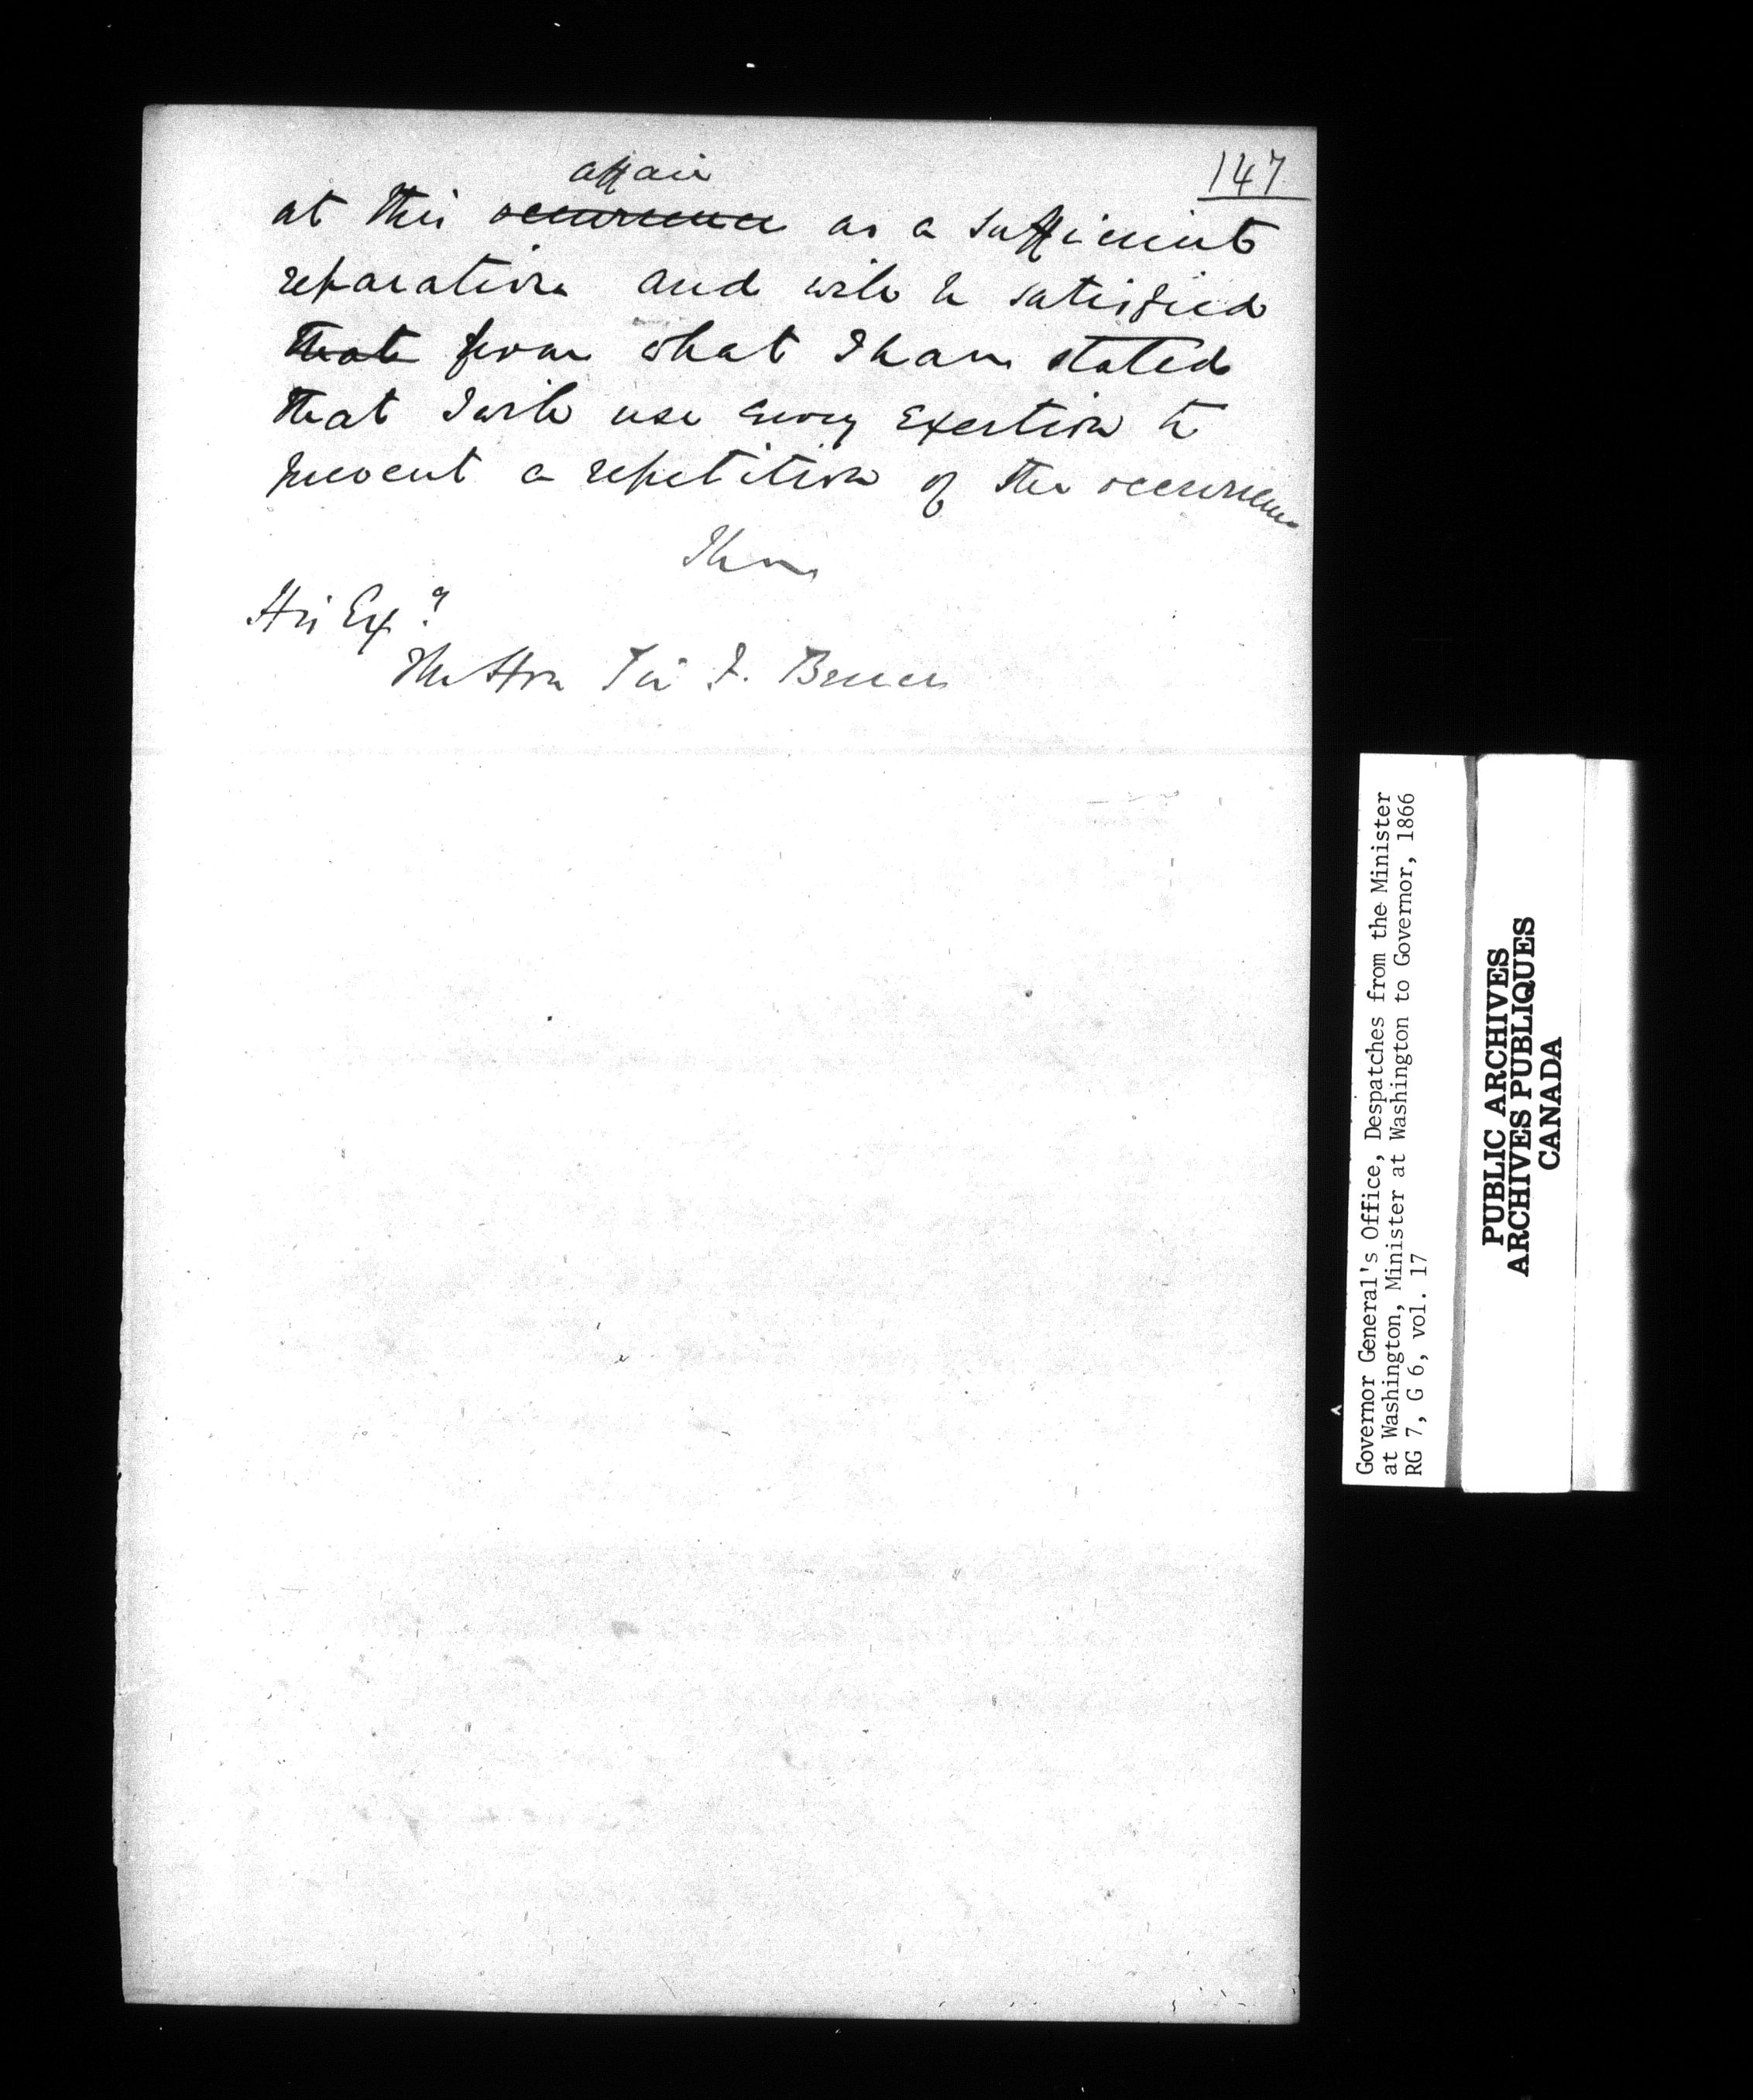 147
affair
at this occurrence as a sufficient
reparation and will be satisfied
that from what I have stated
that I will use every exertion to
prevent a repetition of the occurrence
I have
His Exy
The Hon Sir F. Bruce
Governor General's Office, Despatches from the Minister
at Washington, Minister at Washington to Governor, 1866
RG 7, G 6, vol. 17
PUBLIC ARCHIVES
ARCHIVES PUBLIQUES
CANADA